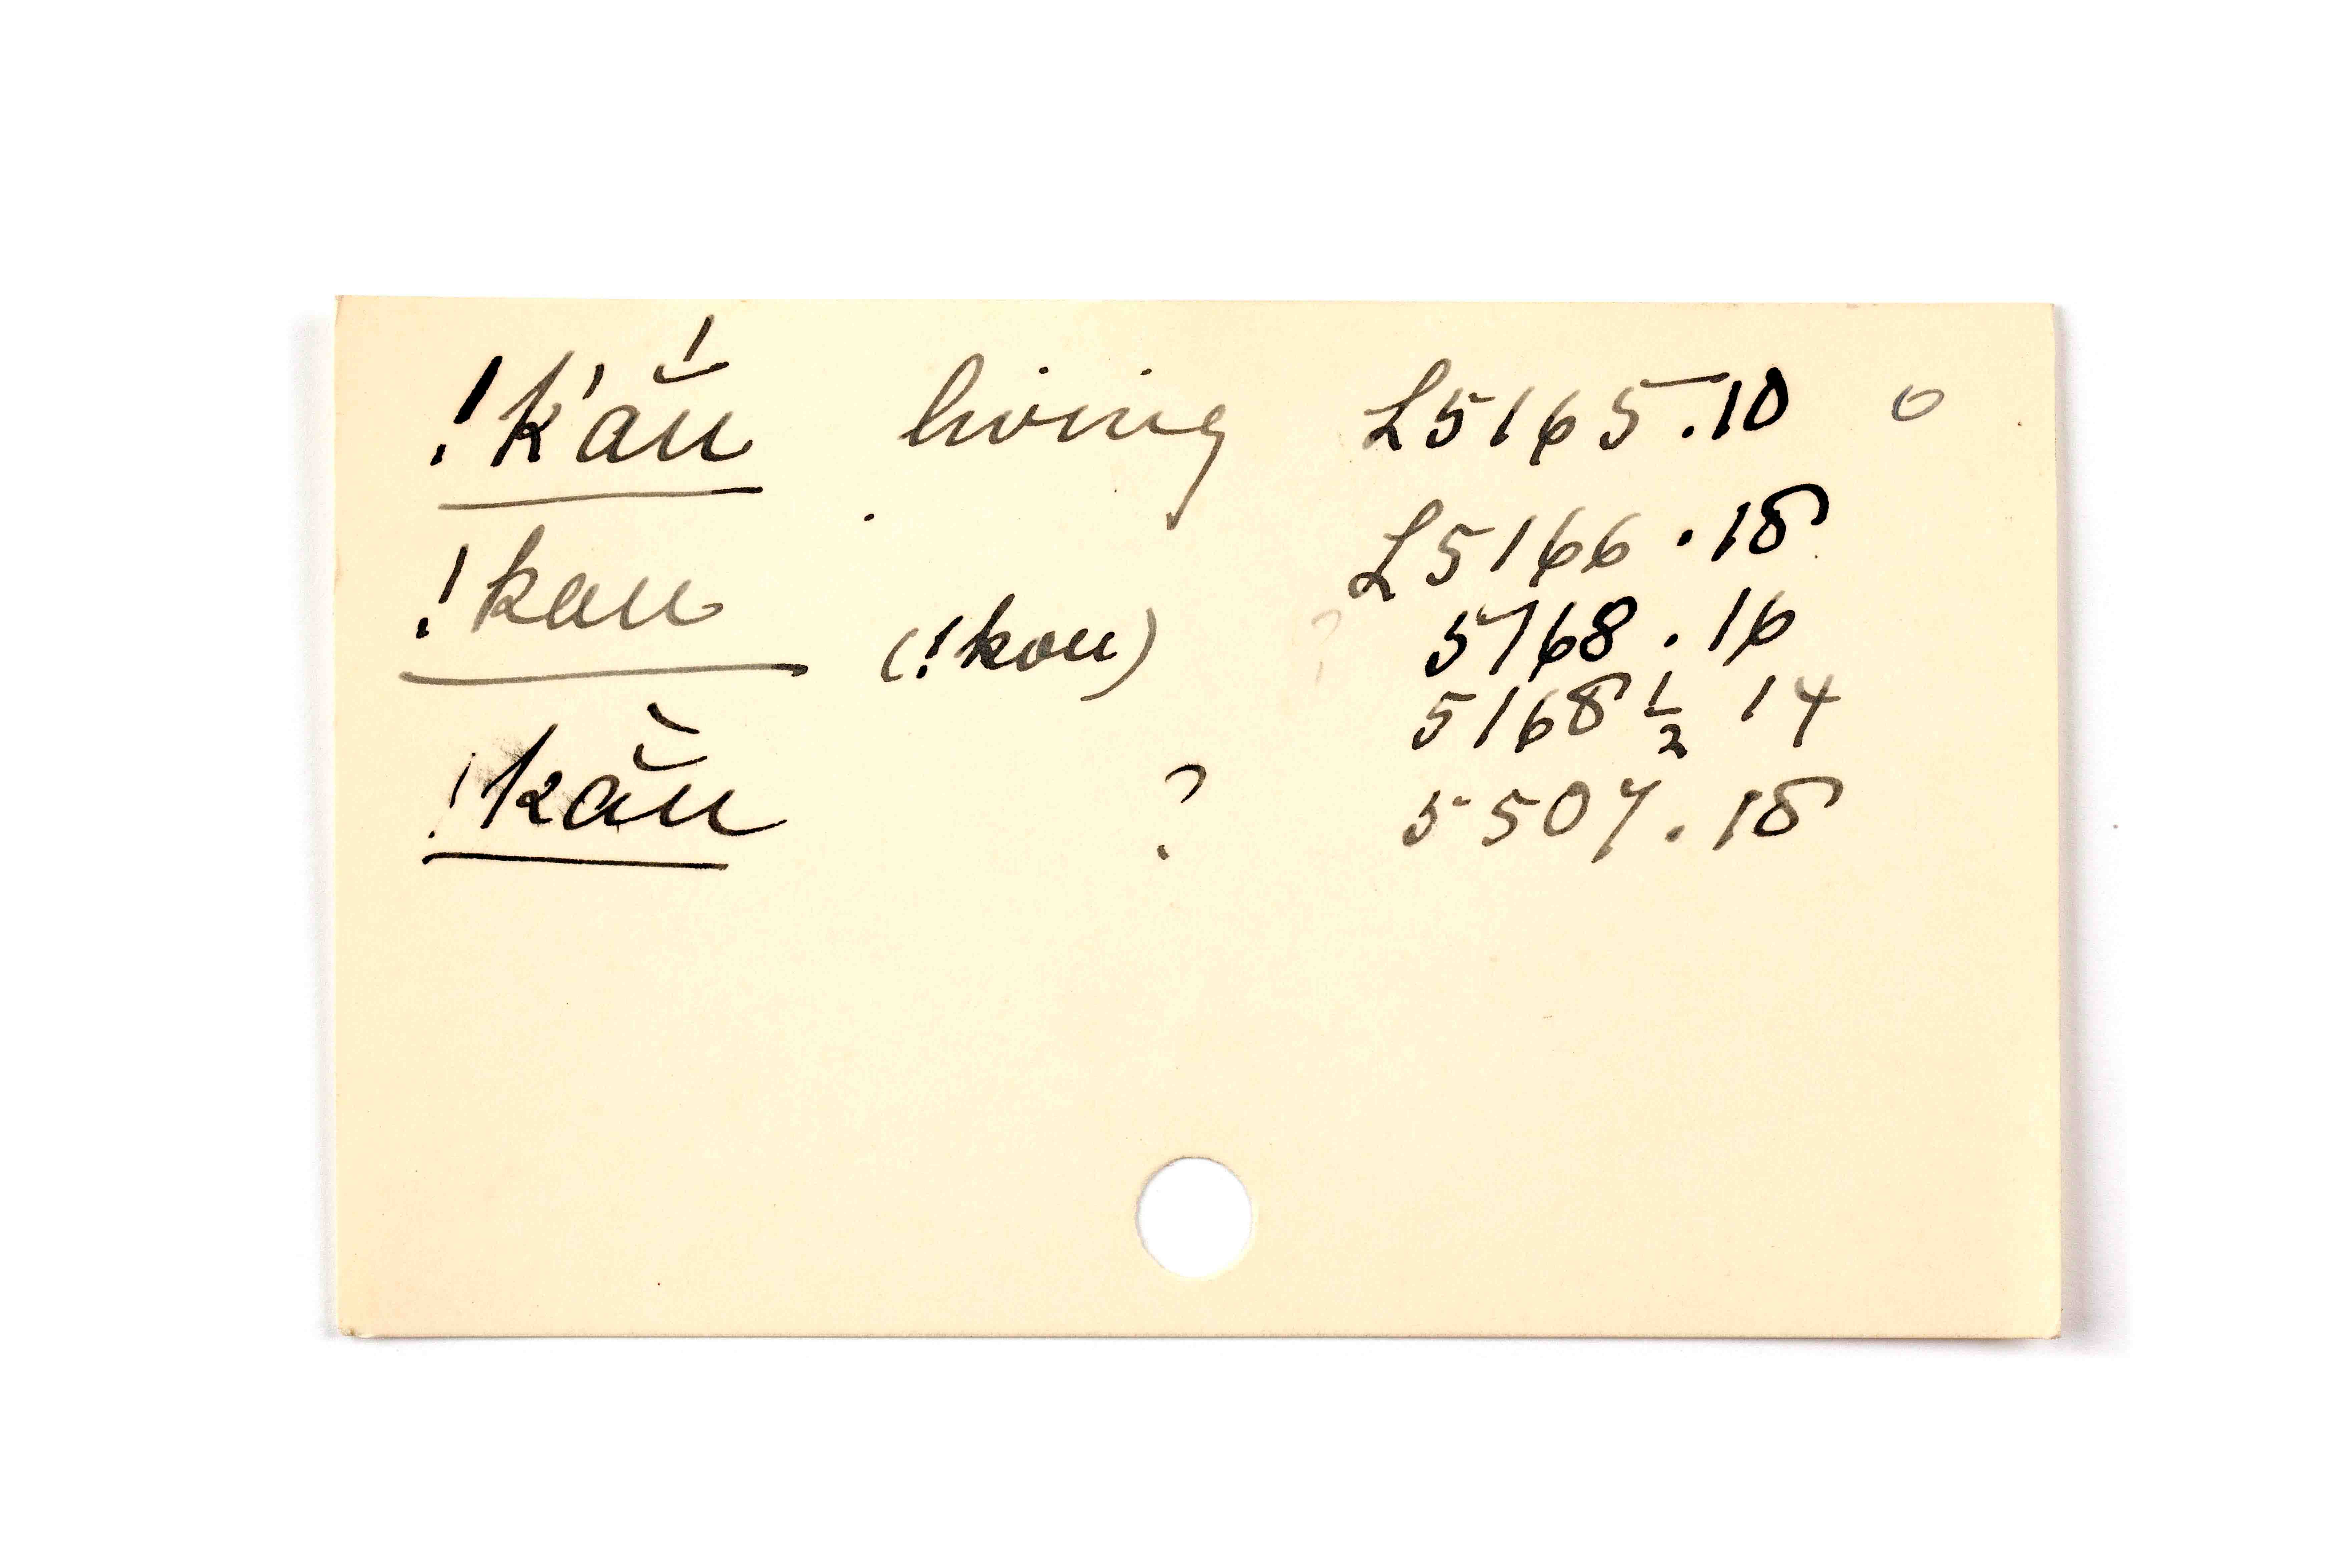 !k'ắu living L5165.10 o
!kau L5166.18
(!kou) ? 5168.16
5168½ 14
!kằu ? 5507.18